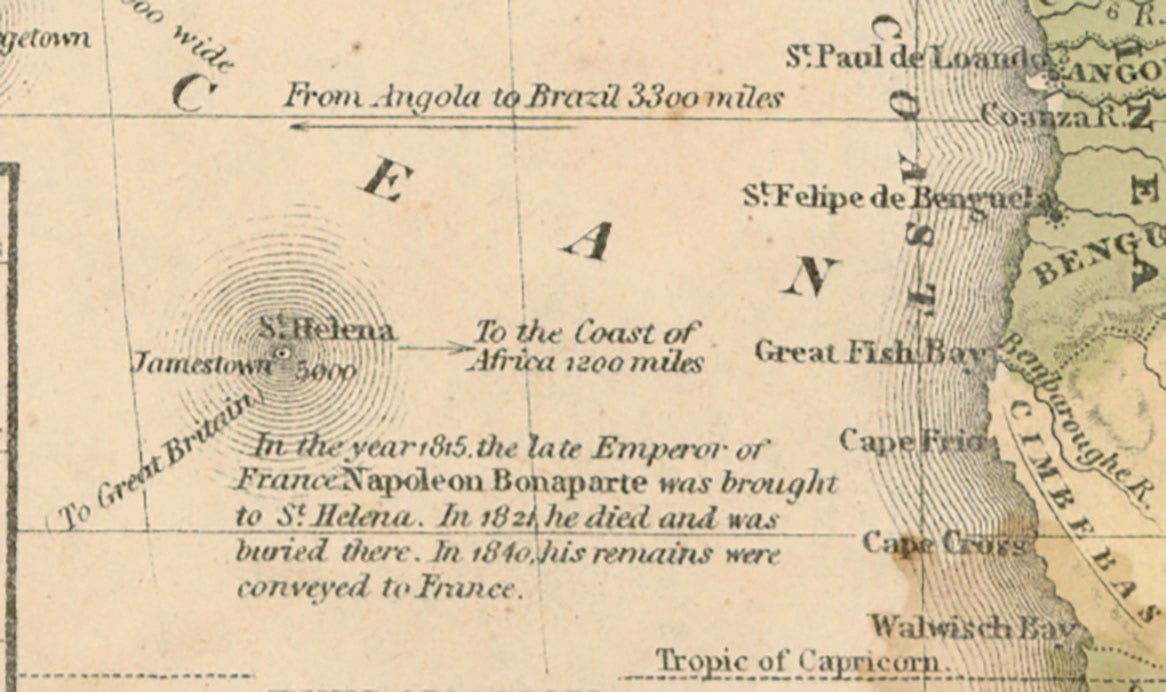 getown
000 wide
6 R.
St. Paul de Loando
ANGO
C E A N
From Angola to Brazil 3300 miles
Coanza R.
COAST
St. Felipe de Benguela
BENGU
N E A
St. Helena
To the Coast of
Africa 1200 miles
Jamestown 5000
Great Fish Bay
Bembaroughe R.
(To Great Britain)
CIMBEBAS
Cape Frio
In the year 1815, the late Emperor of
France Napoleon Bonaparte was brought
to St. Helena. In 1821, he died and was
buried there. In 1840, his remains were
conveyed to France.
Cape Cross
Walwisch Bay
Tropic of Capricorn.